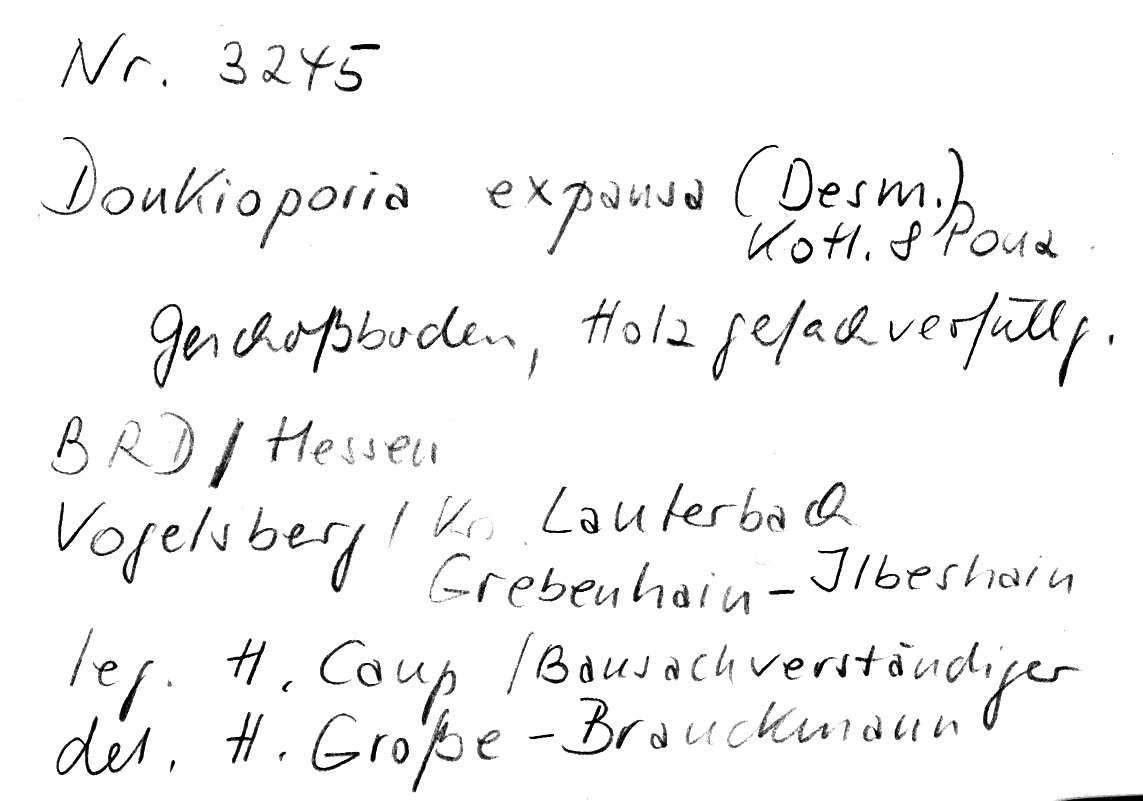 Nr. 3245
Donkioporia expansa (Desm.)
Kotl. & Pouz.
Geschoßboden, Holz gefachverfüllg.
BRD / Hessen
Vogelsberg / Kr. Lauterbach
Grebenhain - Ilbeshain
leg. H. Caup / Bausachverständiger
det. H. Große - Brauckmann